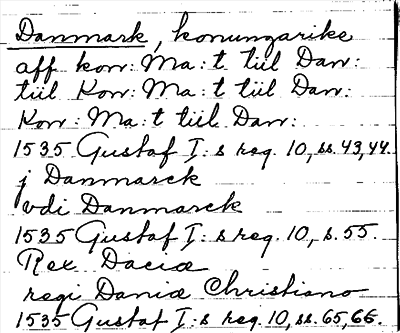 Danmark, konungarike
aff kon: Ma:t till Dan:
till Kon: Ma:t till Dan:
Kon: Ma:t till Dan:
1535 Gustaf I:s reg. 10, ss. 43, 44.
j Danmarck
vdi Danmarck
1535 Gustaf I:s reg. 10, s. 55.
Rex Daciæ
regi Daniæ Christiano
1535 Gustaf I:s reg. 10, ss. 65, 66.